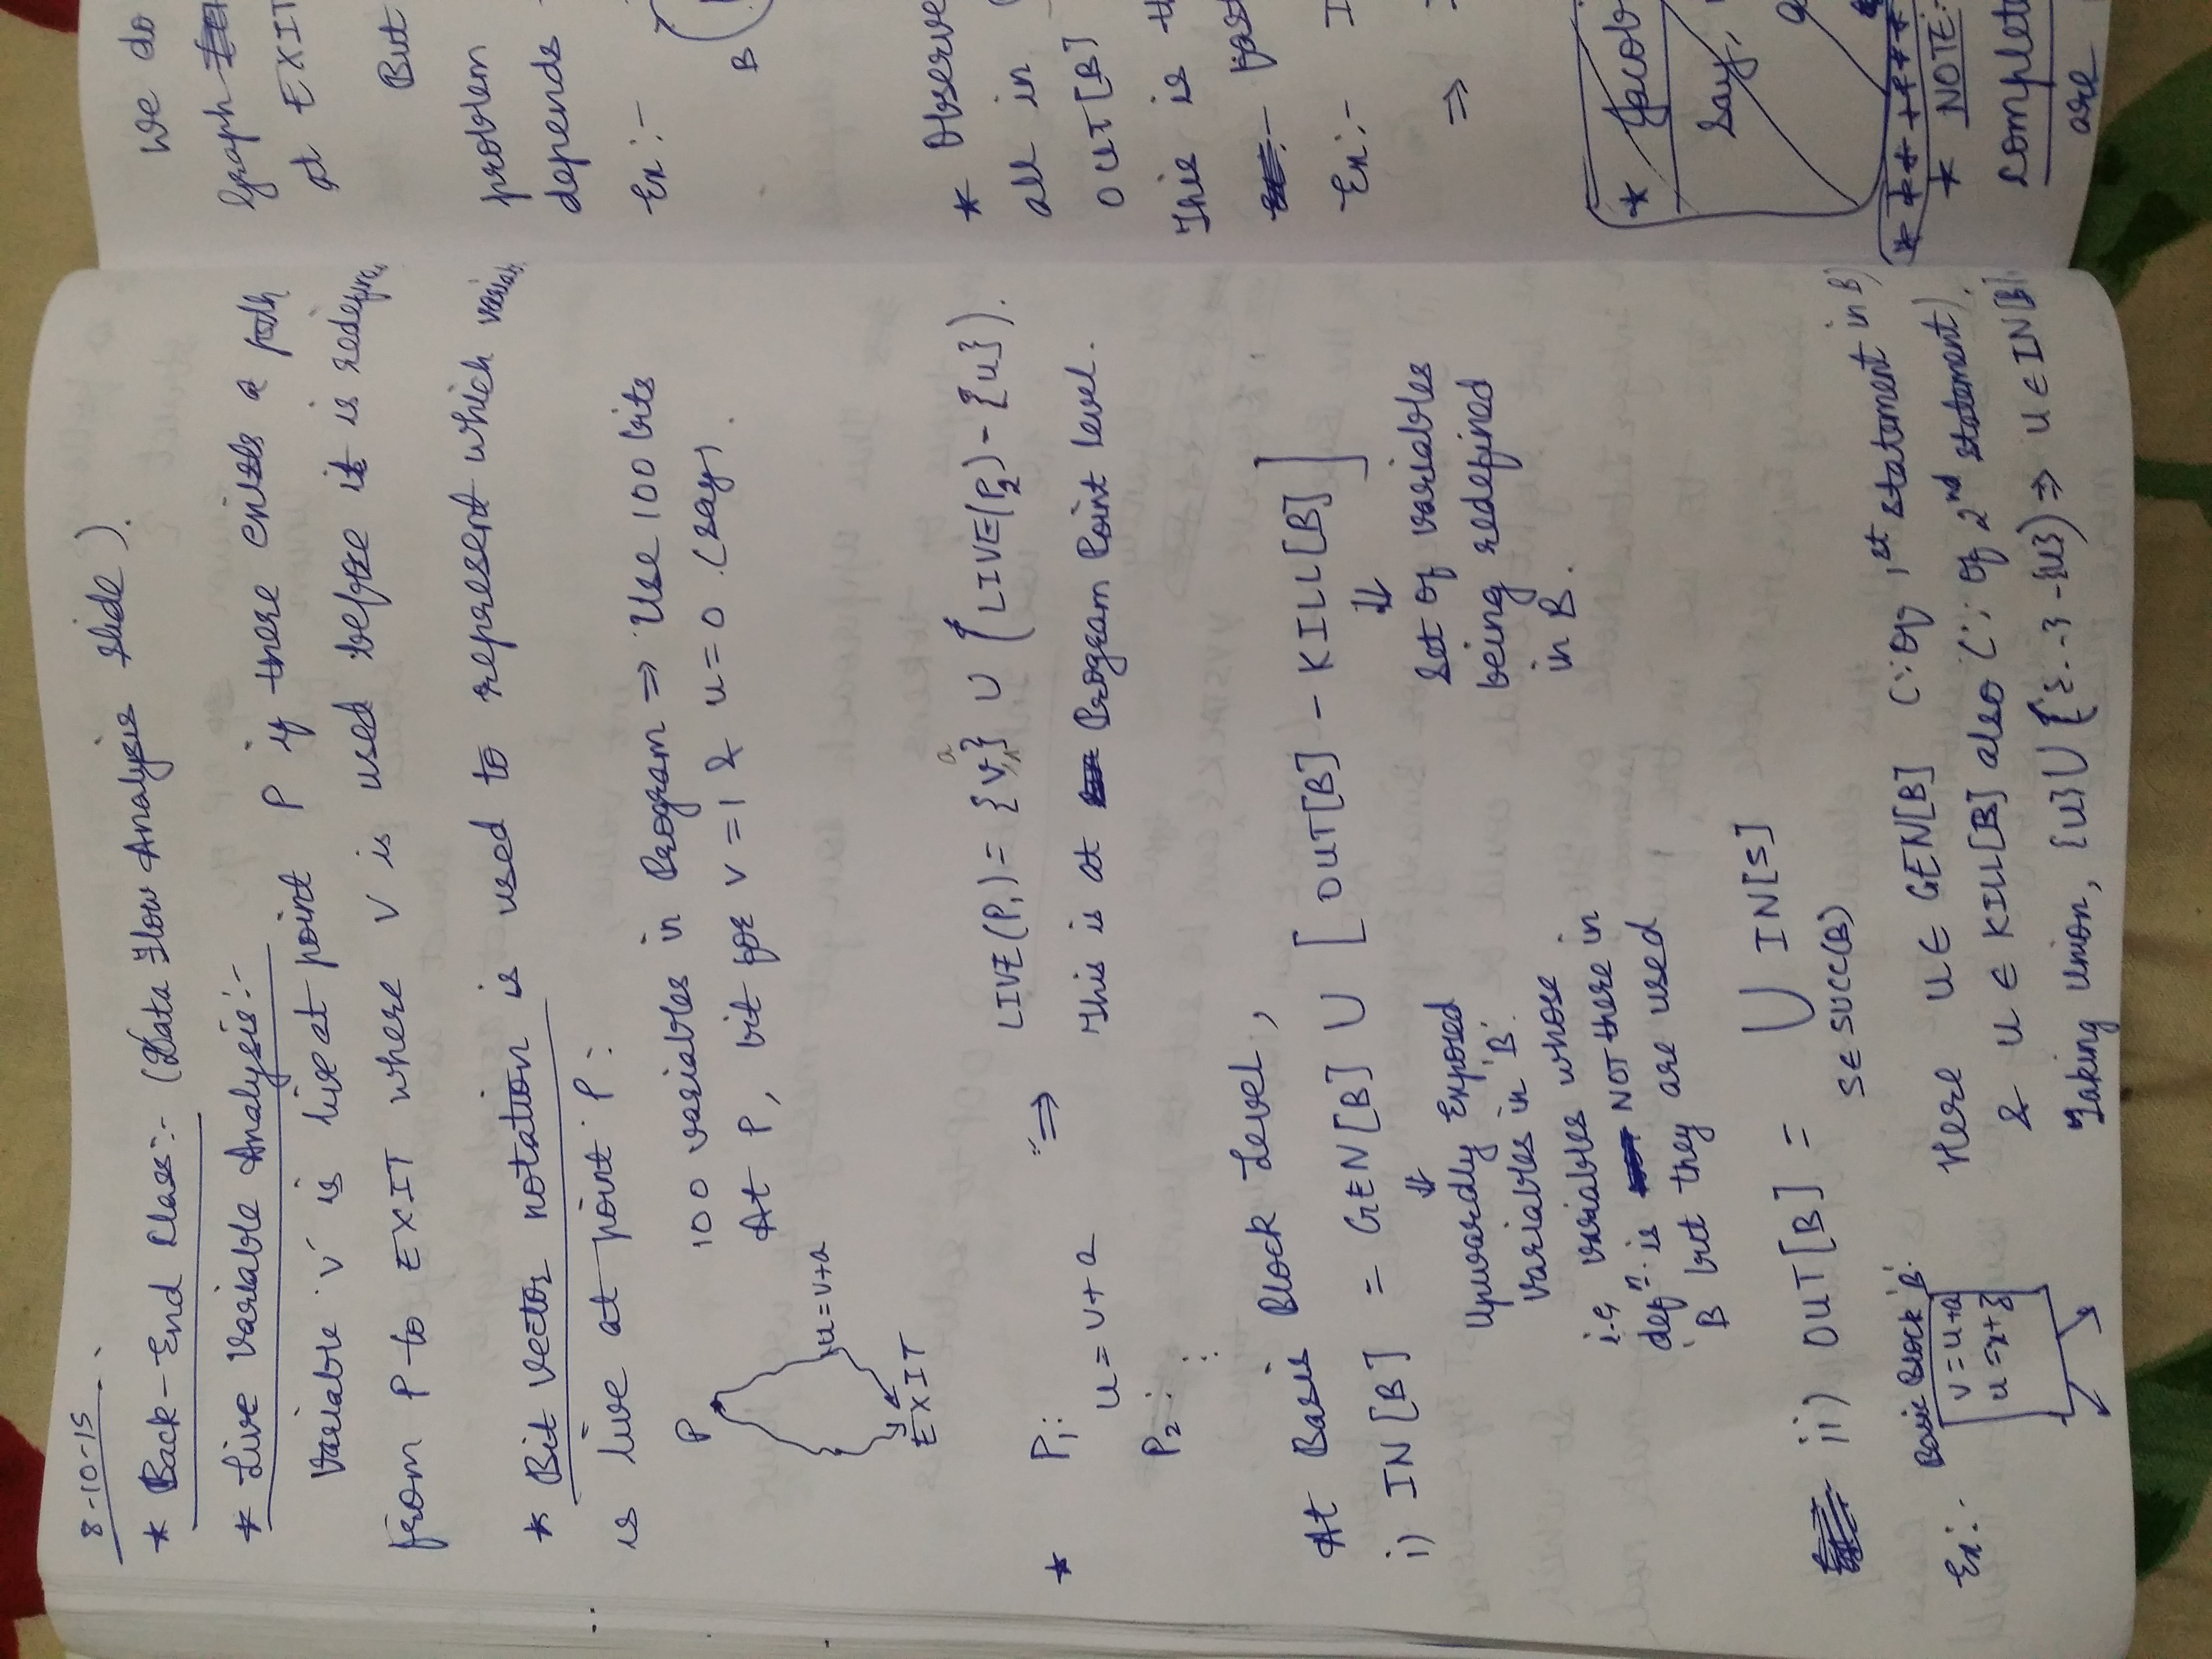 8-10-15
* Back-End Class:- (Data Flow Analysis slide).
* Live Variable Analysis:-
Variable 'v' is live at point P if there exists a path
from P to EXIT where v is used before it is redefine
* Bit Vector notation is used to represent which variab
is live at point P:
100 variables in Program ⇒ Use 100 bits
At P, bit for v=1 & u=0 (say).
P
u=v+a
EXIT
LIVE(P₁) = {v,a} ∪ (LIVE(P₂) - {u}).
* P₁: ⇒
This is at Program Point level.
u = v+a
P₂:
⋮
At Basic Block Level,
i) IN[B] = GEN[B] ∪ [OUT[B] - KILL[B]]
⇓ ⇓
Upwardly Exposed
Variables in 'B'.
i.e, variables whose
defⁿ. is NOT there in
'B but they are used
Set of variables
being redefined
in B.
ii) OUT[B] = ∪ IN[S]
S∈ SUCC(B)
Ex:- Basic Block 'B'.
v = u+a
u = x+z
Here u ∈ GEN[B] (∵ of 1st statement in B)
& u ∈ KILL[B] also (∵ of 2nd statement).
Taking Union, {u} ∪ ({...} - {u}) ⇒ u ∈ IN[B].
We do
Graph
at EXIT
But
problem
depends
Ex:-
B
* Observe
all in
OUT[B]
This is
fast
Ex:- I
⇒
* Jacob
Say,
* * * * * * *
* NOTE:-
complete
are